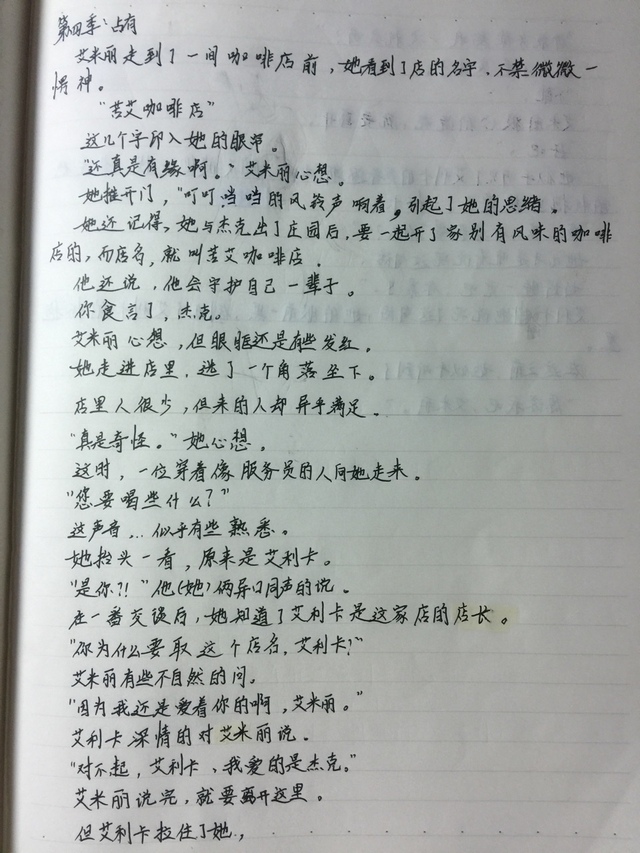 第四季：占有
艾米丽走到了一间咖啡店前，她看到了店的名字，不禁微微一
愣神。
“苦艾咖啡店”
这几个字印入她的眼帘。
“还真是有缘啊。”艾米丽心想。
她推开门，“叮叮当当的风铃声响着，引起了她的思绪。
她还记得，她与杰克出了庄园后，要一起开了家别有风味的咖啡
店的，而店名，就叫苦艾咖啡店．
他还说，他会守护自己一辈子。
你食言了，杰克。
艾米丽心想，但眼眶还是有些发红．
她走进店里，选了一个角落坐下。
店里人很少，但来的人却异乎满足．
“真是奇怪。”她心想，
这时，一位穿着像服务员的人向她走来．
“您要喝些什么？”
这声音...似乎有些熟悉。
她抬头一看，原来是艾利卡。
“是你?!”他(她)俩异口同声的说．
在一番交谈后，她知道了艾利卡是这家店的店长。
“你为什么要取这个店名，艾利卡?”
艾米丽有些不自然的问.
“因为我还是爱着你的啊，艾米丽。”
艾利卡深情的对艾米丽说．
“对不起，艾利卡、我爱的是杰克。”
艾米丽说完，就要离开这里．
但艾利卡拉住了她，